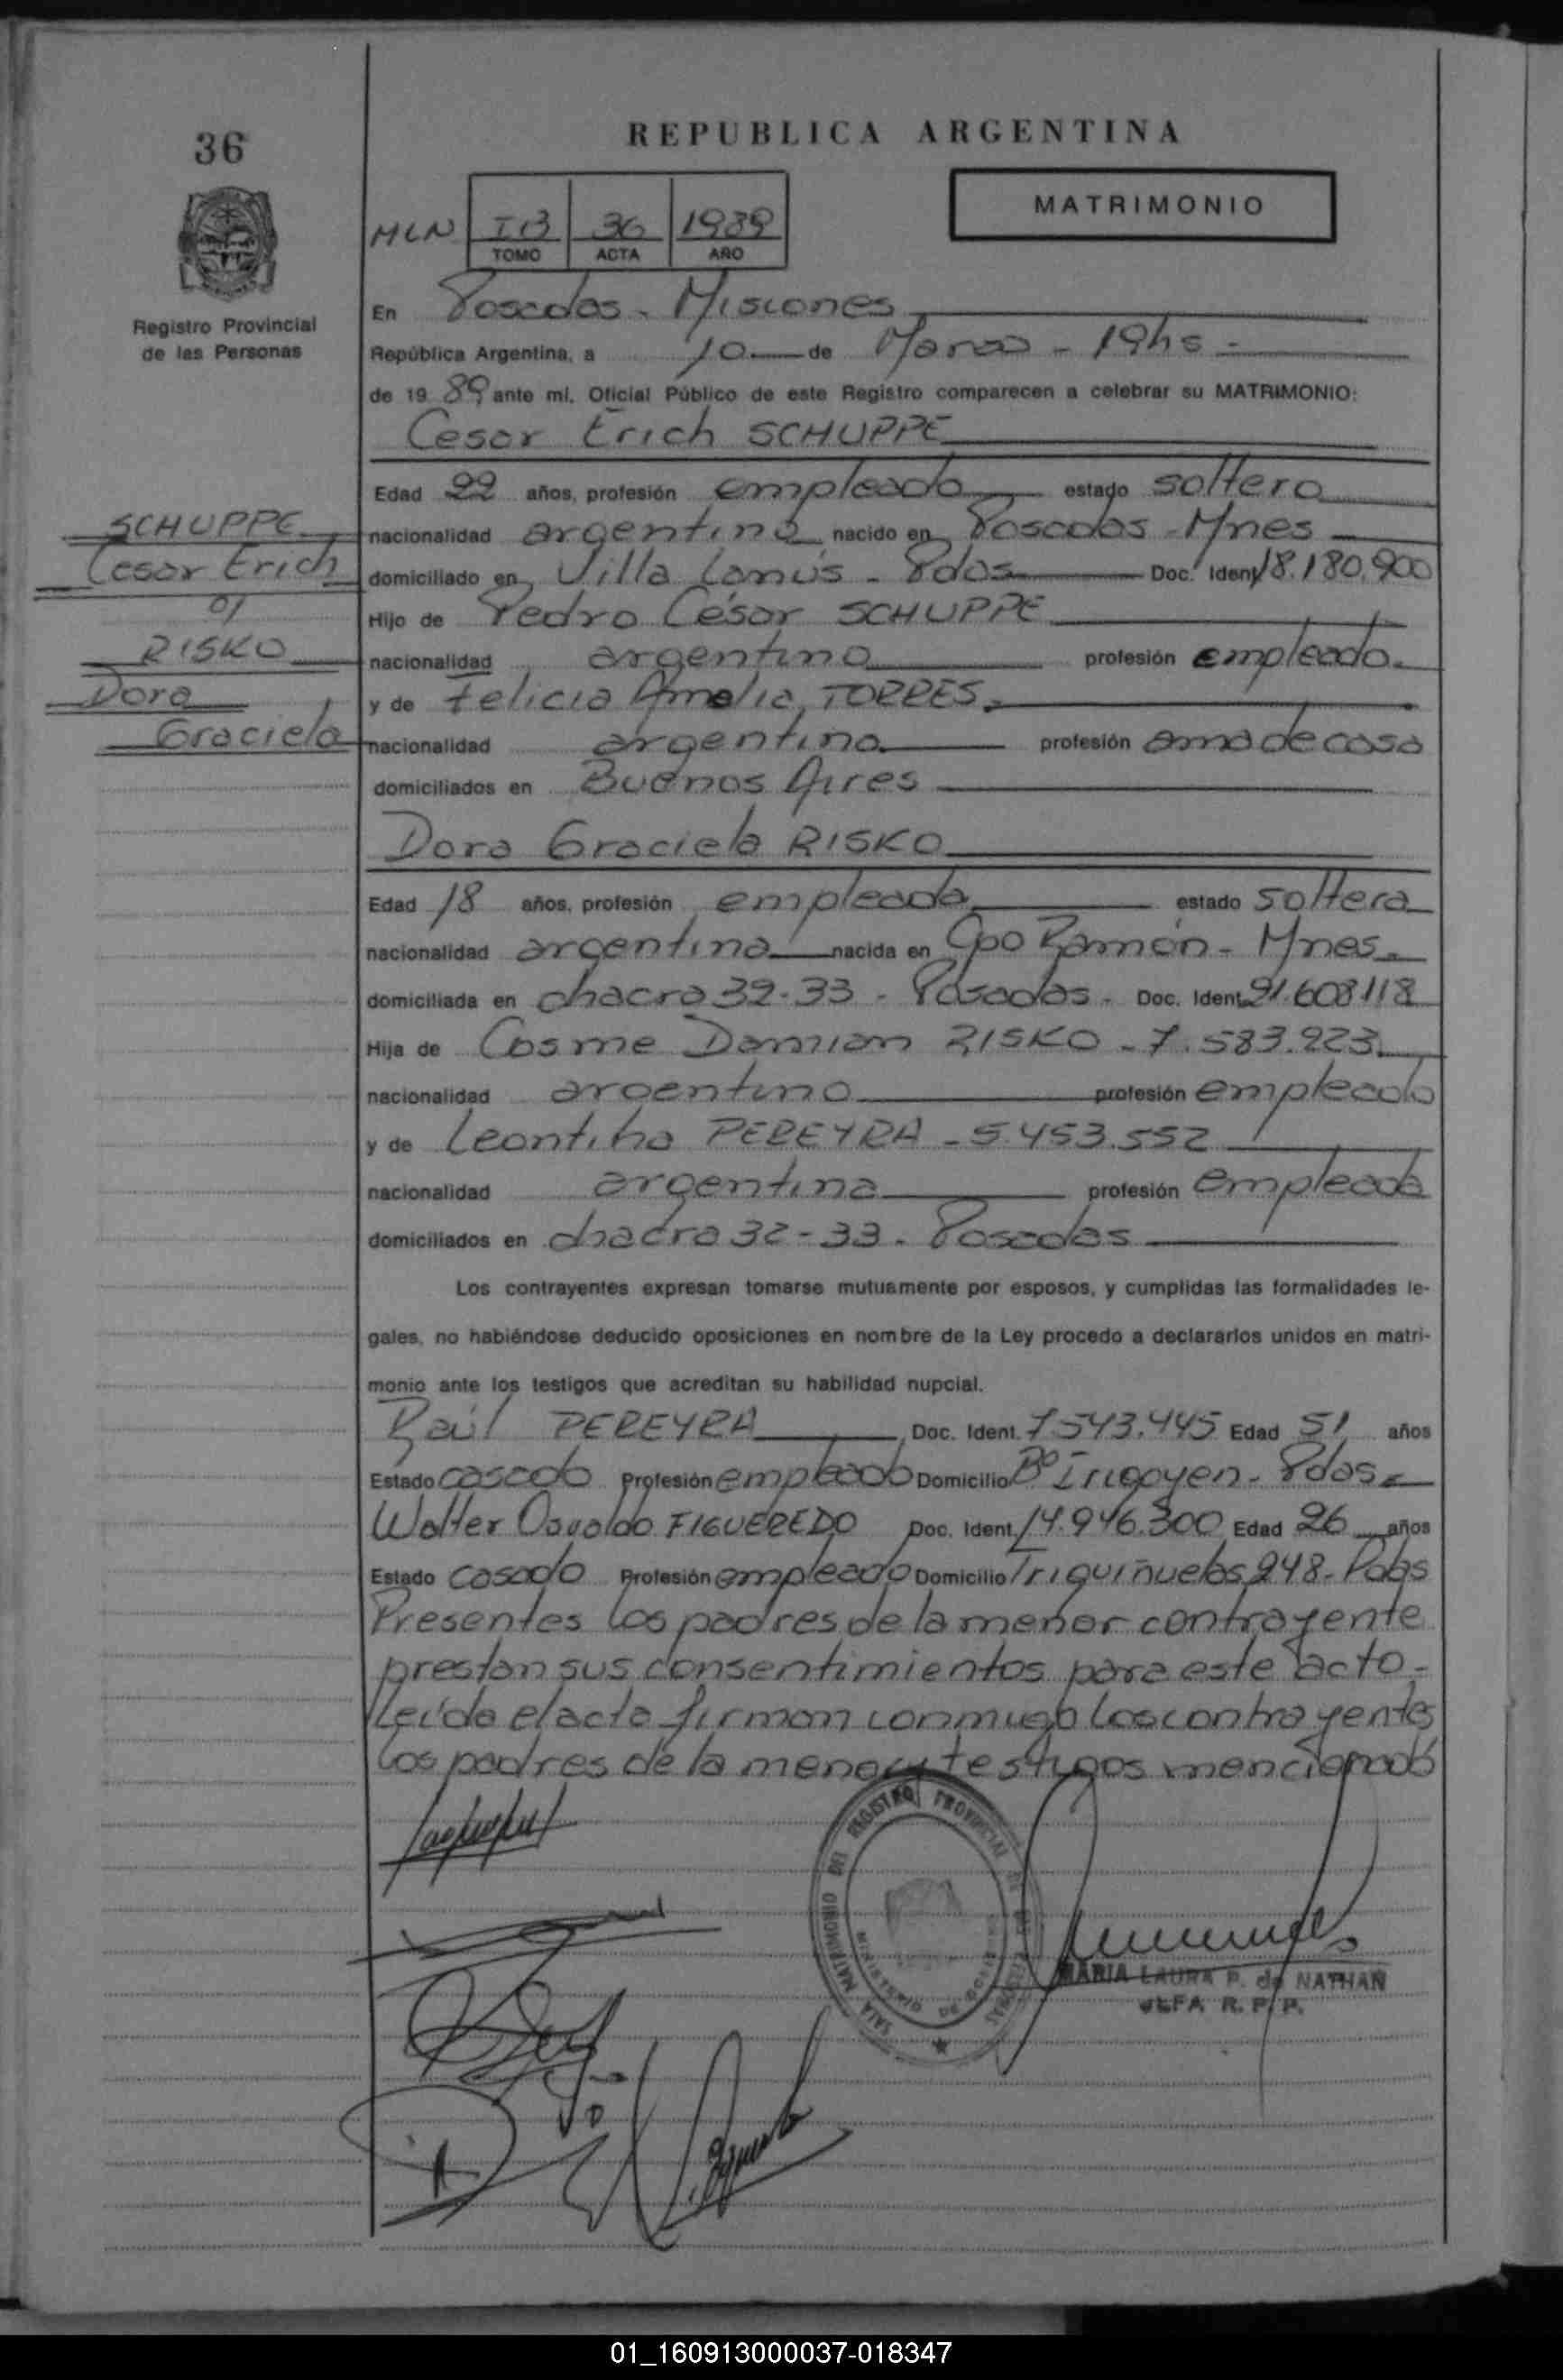 36
REPUBLICA ARGENTINA
MATRIMONIO
MLN IB 36 1989
TOMO ACTA AÑO
Registro Provincial
de las Personas
En Posadas - Misiones
República Argentina, a 10 de Marzo - 19hs -
de 1989 ante mí, Oficial Público de este Registro comparecen a celebrar su MATRIMONIO:
Cesar Erich SCHUPPE
Edad 22 años, profesión empleado estado soltero
SCHUPPE
nacionalidad argentino nacido en Posadas - Mnes
Cesar Erich
domiciliado en Villa Lanús - Pdas Doc. Ident 18.180.900
c/
Hijo de Pedro César SCHUPPE
RISKO
nacionalidad argentino profesión empleado.
Dora
y de Felicia Amalia TORRES.
Graciela
nacionalidad argentina profesión ama de casa
domiciliados en Buenos Aires
Dora Graciela RISKO
Edad 18 años, profesión empleada estado soltera
nacionalidad argentina nacida en Cpo Ramón - Mnes.
domiciliada en chacra 32-33 - Posadas - Doc. Ident. 21.608.118
Hija de Cosme Damian RISKO - 7.583.223.
nacionalidad argentino profesión empleado
y de Leontina PEREYRA - 5.453.552
nacionalidad argentina profesión empleada
domiciliados en chacra 32-33 - Posadas
Los contrayentes expresan tomarse mutuamente por esposos, y cumplidas las formalidades le-
gales, no habiéndose deducido oposiciones en nombre de la Ley procedo a declararlos unidos en matri-
monio ante los testigos que acreditan su habilidad nupcial.
Raúl PEREYRA Doc. Ident. 7.543.445 Edad 51 años
Estado casado Profesión empleado Domicilio Bº Irigoyen - Pdas.
Walter Osvaldo FIGUEREDO Doc. Ident. 14.946.300 Edad 26 años
Estado casado Profesión empleado Domicilio Triquiñuelas 248 - Pdas
Presentes los padres de la menor contrayente
prestan sus consentimientos para este acto -
Leída el acta firman conmigo los contrayentes
los padres de la menor y testigos mencionados
SALA MATRIMONIO DEL REGISTRO PROVINCIAL DE LAS PERSONAS
MINISTERIO DE GOBIERNO
MARIA LAURA P. de NATHAN
JEFA R. P. P.
01_160913000037-018347